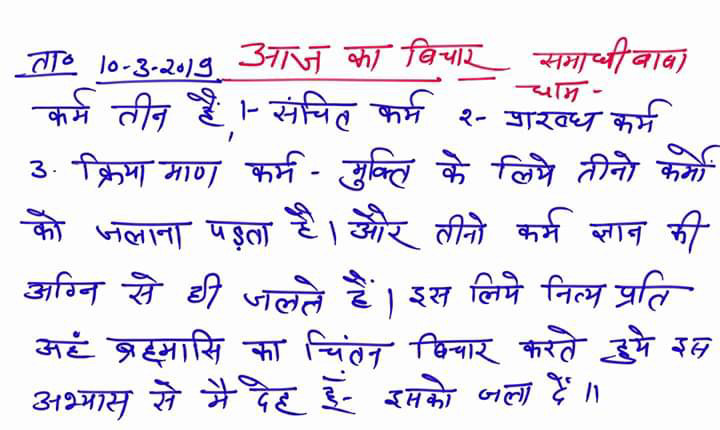 ता० 10-3-2019 आज का बिचार समाधी बाबा
धाम -
कर्म तीन हैं, 1- संचित कर्म २- प्रारब्ध कर्म
3. क्रिया माण कर्म - मुक्ति के लिये तीनो कर्मों
को जलाना पड़ता है। और तीनो कर्म ज्ञान की
अग्नि से ही जलते हैं। इस लिये नित्य प्रति
अहं ब्रह्मासि का चिंतन बिचार करते हुये इस
अभ्यास से मै देह हूँ- इसको जला दें॥